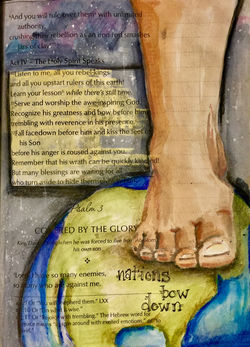 ⁸And you will rule over them with unlimited
authority,
crushing their rebellion as an iron rod smashes
jars of clay!"
Act IV – The Holy Spirit Speaks
Listen to me, all you rebel-kings
and all you upstart rulers of this earth!
Learn your lesson while there's still time.
Serve and worship the awe-inspiring God.
Recognize his greatness and bow before him,
trembling with reverence in his presence.
Fall facedown before him and kiss the feet of
his Son
before his anger is roused against you.
Remember that his wrath can be quickly kindled!
But many blessings are waiting for all
who turn aside to hide themselves
Psalm 3
COVERED BY THE GLORY
King when he was forced to
his own son
Lord, I have so many enemies,
so many who are against me.
nations
bow
down
Or "You will shepherd them." LXX
Or "with trembling." The Hebrew word for
spin around with excited emotions."